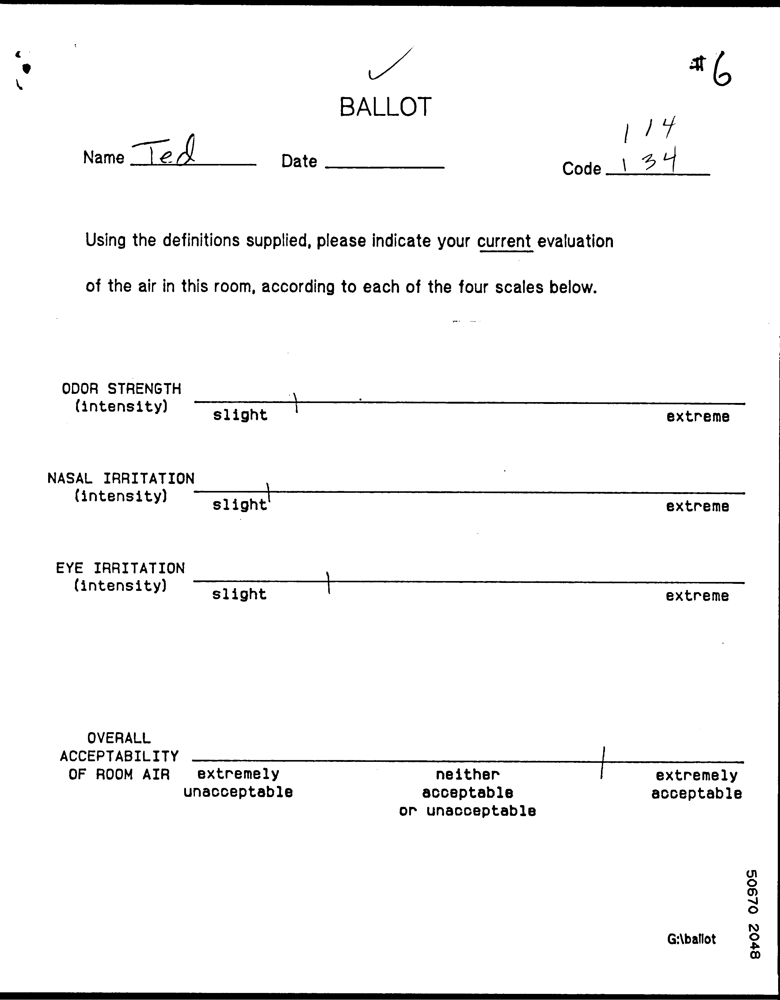 #6
BALLOT
114
Name Ted Date Code 134
Using the definitions supplied, please indicate your current evaluation
of the air in this room, according to each of the four scales below.
ODOR STRENGTH
(intensity) slight extreme
NASAL IRRITATION
(intensity) slight extreme
EYE IRRITATION
(intensity) slight extreme
OVERALL
ACCEPTABILITY
OF ROOM AIR extremely neither extremely
unacceptable acceptable acceptable
or unacceptable
G:\ballot
50670 2048